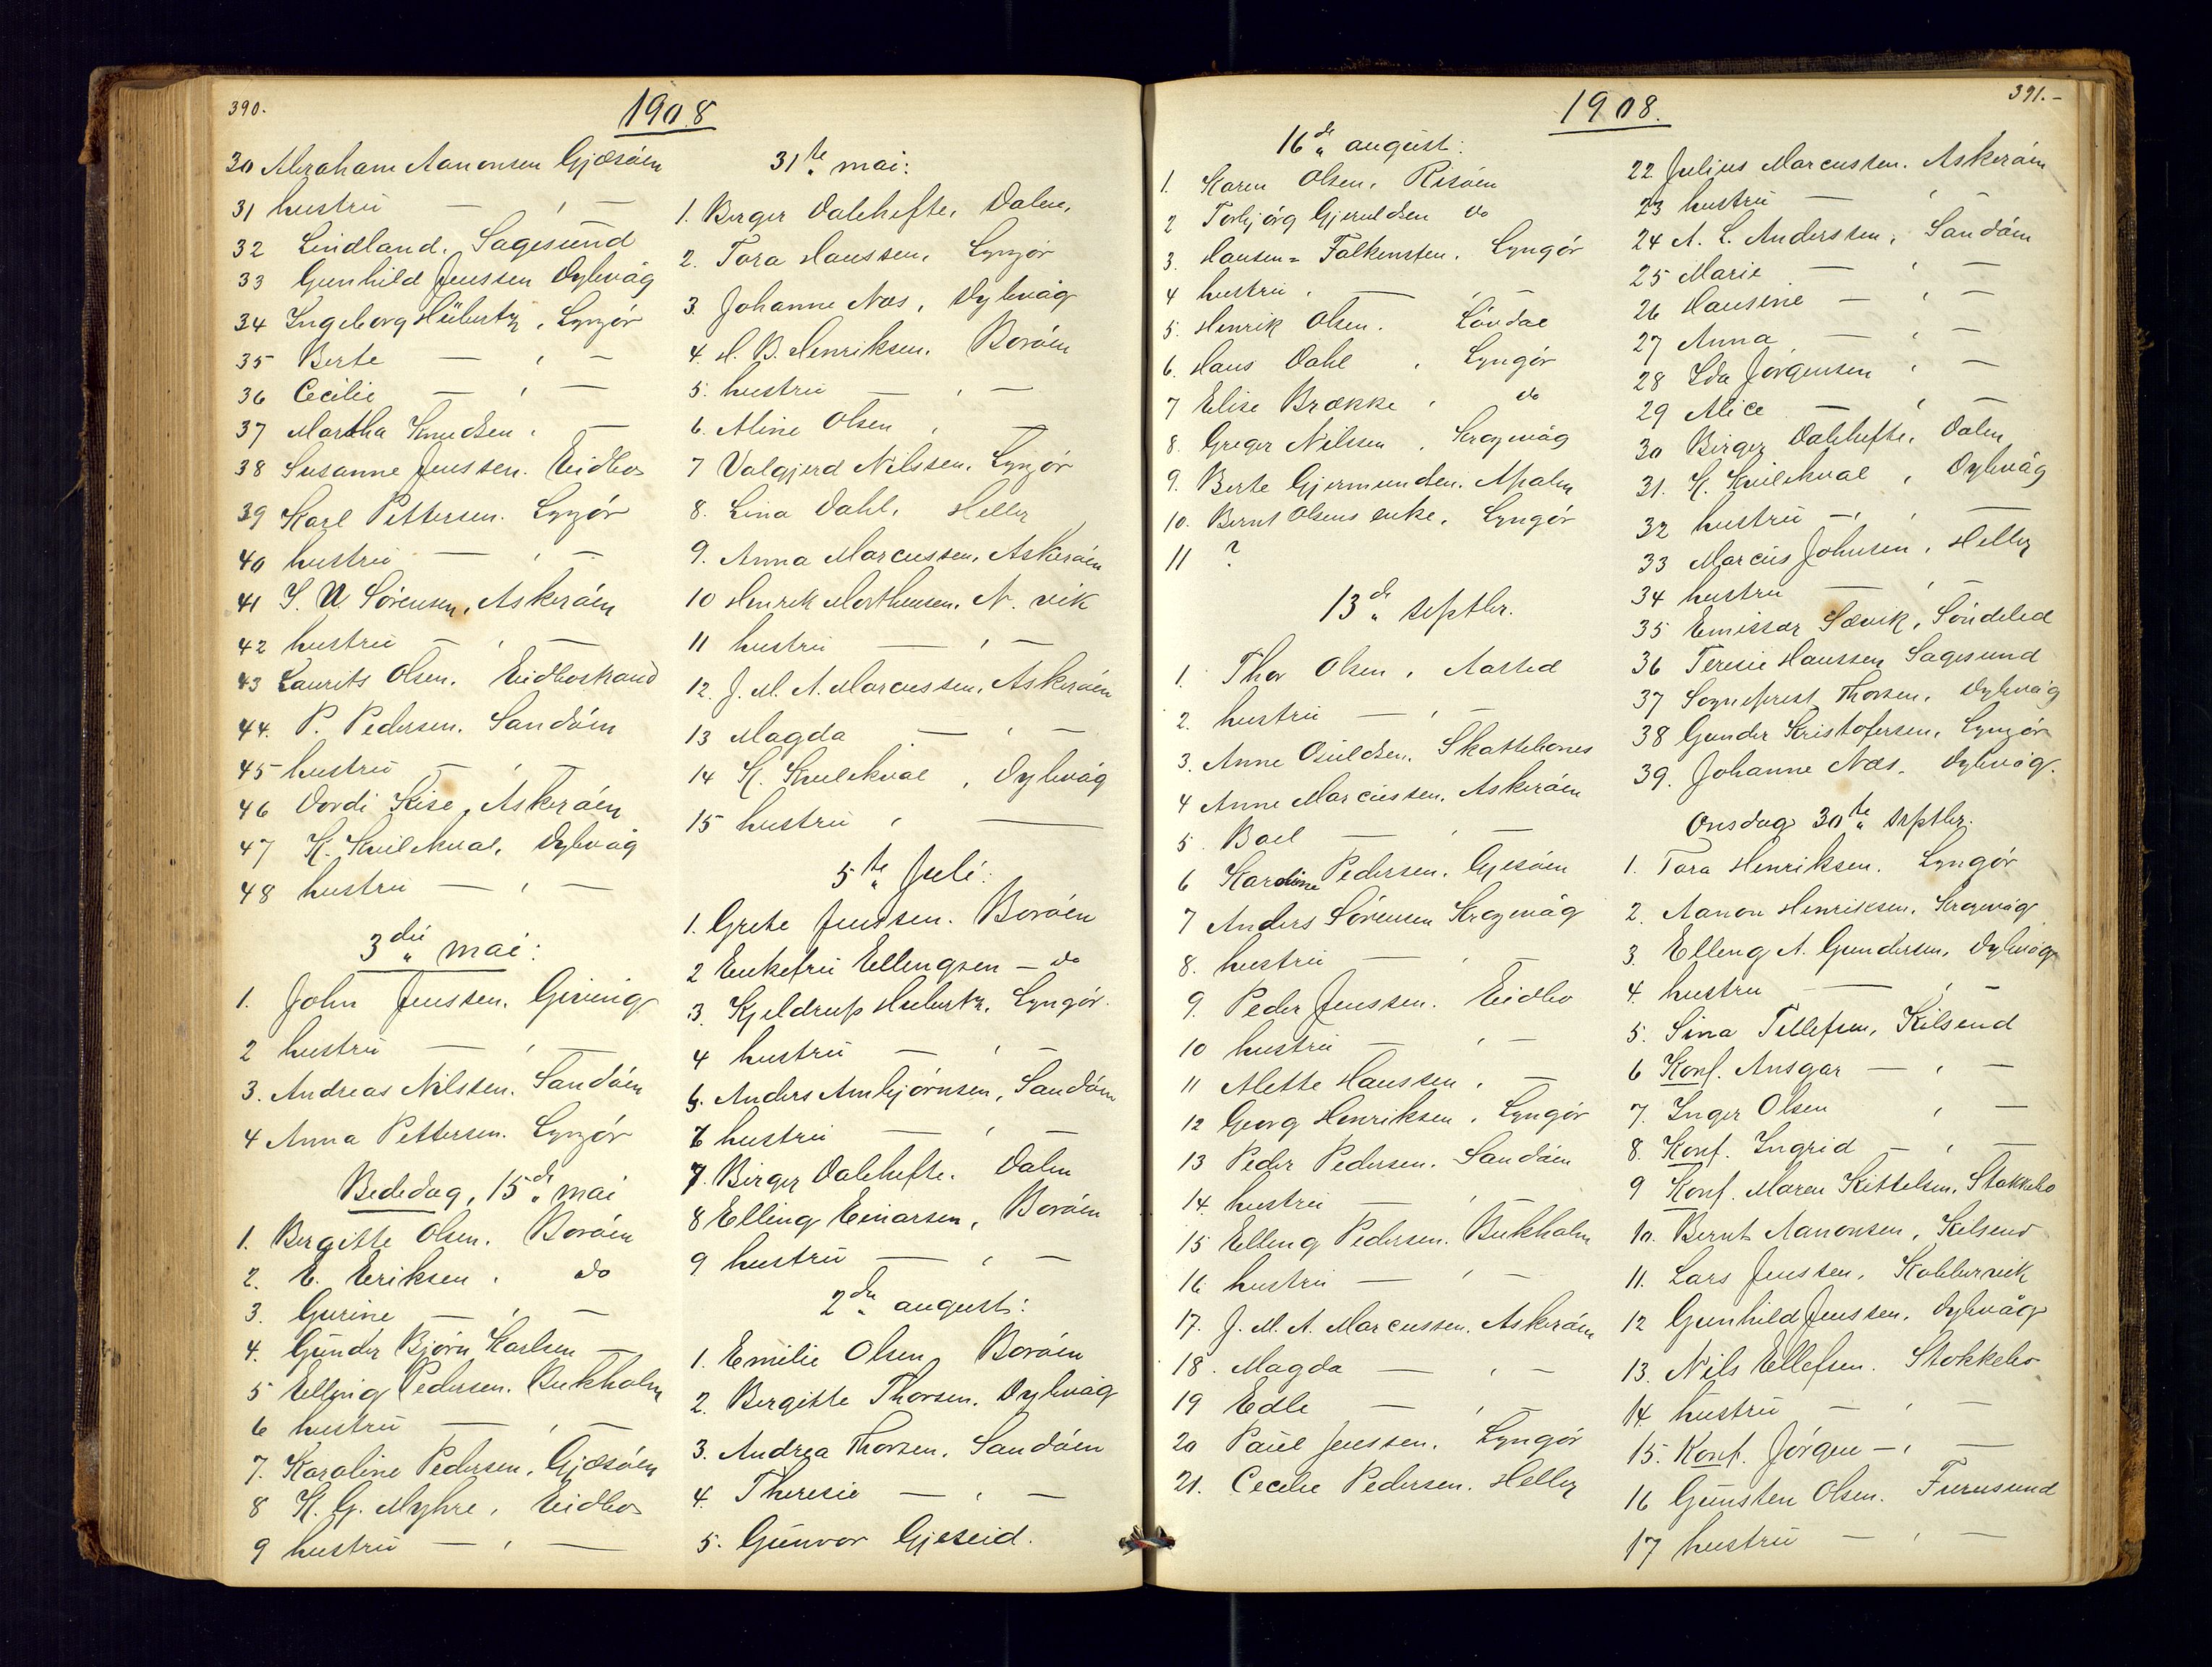 390.
1908
30 Abraham Aanonsen Gjæsøen
31 hustru — , —
32 Lindland. Sagesund
33 Gunhild Jenssen Dybvåg
34 Ingeborg Hübertz, Lyngör
35 Berte — , —
36 Cecilie — , —
37 Martha Knudsen , —
38 Susanne Jenssen. Eidbo
39 Karl Pettersen. Lyngör
40 hustru — , —
41 S. U. Sörensen, Askeröen
42 hustru — , —
43 Laurits Olsen. Eidbostrand
44. P. Pedersen. Sandöen
45 hustru — , —
46 Dordi Kise, Askeröen
47 K. Kvilekval, Dybvåg
48 hustru — , —
3die mai:
1. John Jenssen. Giving
2 hustru — , —
3. Andreas Nilssen. Sandöen
4 Anna Pettersen. Lyngör
Bededag, 15de mai
1. Bergitte Olsen. Boröen
2. E. Eriksen , do
3. Gurine — , —
4. Gunder Bjørn Karlsen —
5 Elling Pedersen. Bukholm
6 hustru — , —
7. Karoline Pedersen, Gjæsöen
8 K. G. Myhre, Eidbo
9 hustru — , —
31te mai:
1. Birger Dalehefte, Dalen,
2. Tora Hanssen, Lyngör
3. Johanne Næs, Dybvåg
4. H. B. Henriksen. Boröen
5. hustru — , —
6. Aline Olsen , —
7 Valgjerd Nilssen, Lyngör
8. Lina Dahl, Hellen
9. Anna Marcussen, Askeröen
10 Henrik Morthensen, N. vik
11 hustru — , —
12. J. M. A. Marcussen, Askeröen
13 Magda — , —
14 K. Kvilekval , Dybvåg
15 hustru , —
5te Juli:
1. Grete Jenssen. Boröen
2 Enkefru Ellengsen — do
3. Kjeldrup Hubertz. Lyngör.
4 hustru — , —
5. Anders Ambjörnsen, Sandöen
6 hustru — , —
7. Birger Dalehefte. Dalen
8 Elling Einarsen, Boröen
9 hustru — , —
2den august:
1. Emilie Olsen, Boröen
2. Bergitte Thorsen. Dybvåg
3. Andrea Thorsen. Sandöen
4. Theresie — , —
5. Gunvor Gjeseid.
391.—
1908.
16de august:
1. Karen Olsen, Risöen
2 Torbjörg Gjeruldsen do
3. Hansen = Falkensten. Lyngör
4 hustru . — , —
5. Henrik Olsen. Lövdal
6. Hans Dahl , Lyngör
7 Elise Brække , do
8. Greger Nilssen . Kragevåg
9. Berte Gjermundsen. Apalen
10. Bernt Olsens enke, Lyngör
11 ?
13de septbr.
1. Thor Olsen, Aasted
2. hustru — , —
3. Anne Osuldsen. Skattebones
4 Anne Marcussen, Askeröen
5. Boel — , —
6 Karoline Pedersen. Gjesöen
7 Anders Sörensen Kragevåg
8. hustru — , —
9. Peder Jenssen. Eidbo
10 hustru — , —
11 Alette Hanssen , —
12 Georg Henriksen, Lyngör
13 Peder Pedersen. Sandöen
14. hustru — , —
15 Elling Pedersen. Bukholm
16 hustru — , —
17. J. M. A. Marcussen. Askeröen
18. Magda — , —
19 Edle — , —
20 Paul Jenssen. Lyngör
21. Cecelie Pedersen. Hellen
22 Julius Marcussen. Askeröen
23 hustru — , —
24 A. L. Anderssen, Sandöen
25 Marie — , —
26 Hansine — , —
27 Anna — , —
28 Ida Jörgensen , —
29 Alice — , —
30 Birger Dalehefte, Dalen
31. K. Kvilekval , Dybvåg
32 hustru — , —
33 Marcus Johnsen, Hellen
34 hustru — , —
35 Emissær Sævik, Söndeled
36 Teresie Hanssen Sagesund
37 Sogneprest Thorsen, Dybvåg
38 Gunder Kristofersen, Lyngör
39. Johanne Næs. Dybvåg.
Onsdag 30te septbr.
1. Tora Henriksen. Lyngör
2. Aanon Henriksen, Kragevåg
3. Elleng A. Gundersen, Dybvåg
4. hustru — , —
5. Sina Tellefsen, Kilsund
6 Konf. Ansgar — , —
7. Inger Olsen , —
8. Konf. Ingrid — , —
9 Konf. Maren Kittelsen, Stokkebo
10. Bernt Aanonsen, Kilsund
11. Lars Jenssen, Kobbervik
12 Gunhild Jenssen, Dybvåg
13. Nils Ellefsen. Stokkebo
14. hustru — , —
15. Konf. Jörgen — , —
16 Gunsten Olsen. Furusund
17 hustru — , —